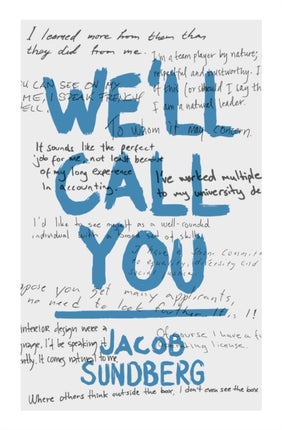 I learned more from them than
they did from me.
I'm a team player by nature;
respectful and trustworthy. I
CAN SEE ON MY
ME, I SPEAK FRENCH
ELL.
if this (or should I say the
I am a natural leader.
WE'LL
To whom it may concern.
It sounds like the perfect
job for me, not least because
of my long experience
in accounting.
CALL
I've worked multiple
to my university de
I'd like to see myself as a well-rounded
individual with a broad set of skills
YOU
pose you get many applicants,
no need to look further. It is I!
interior design were a
I'd be speaking it
It comes natural to me
JACOB
SUNDBERG
Of course I have a
license.
Where others think outside the box, I don't even see the box